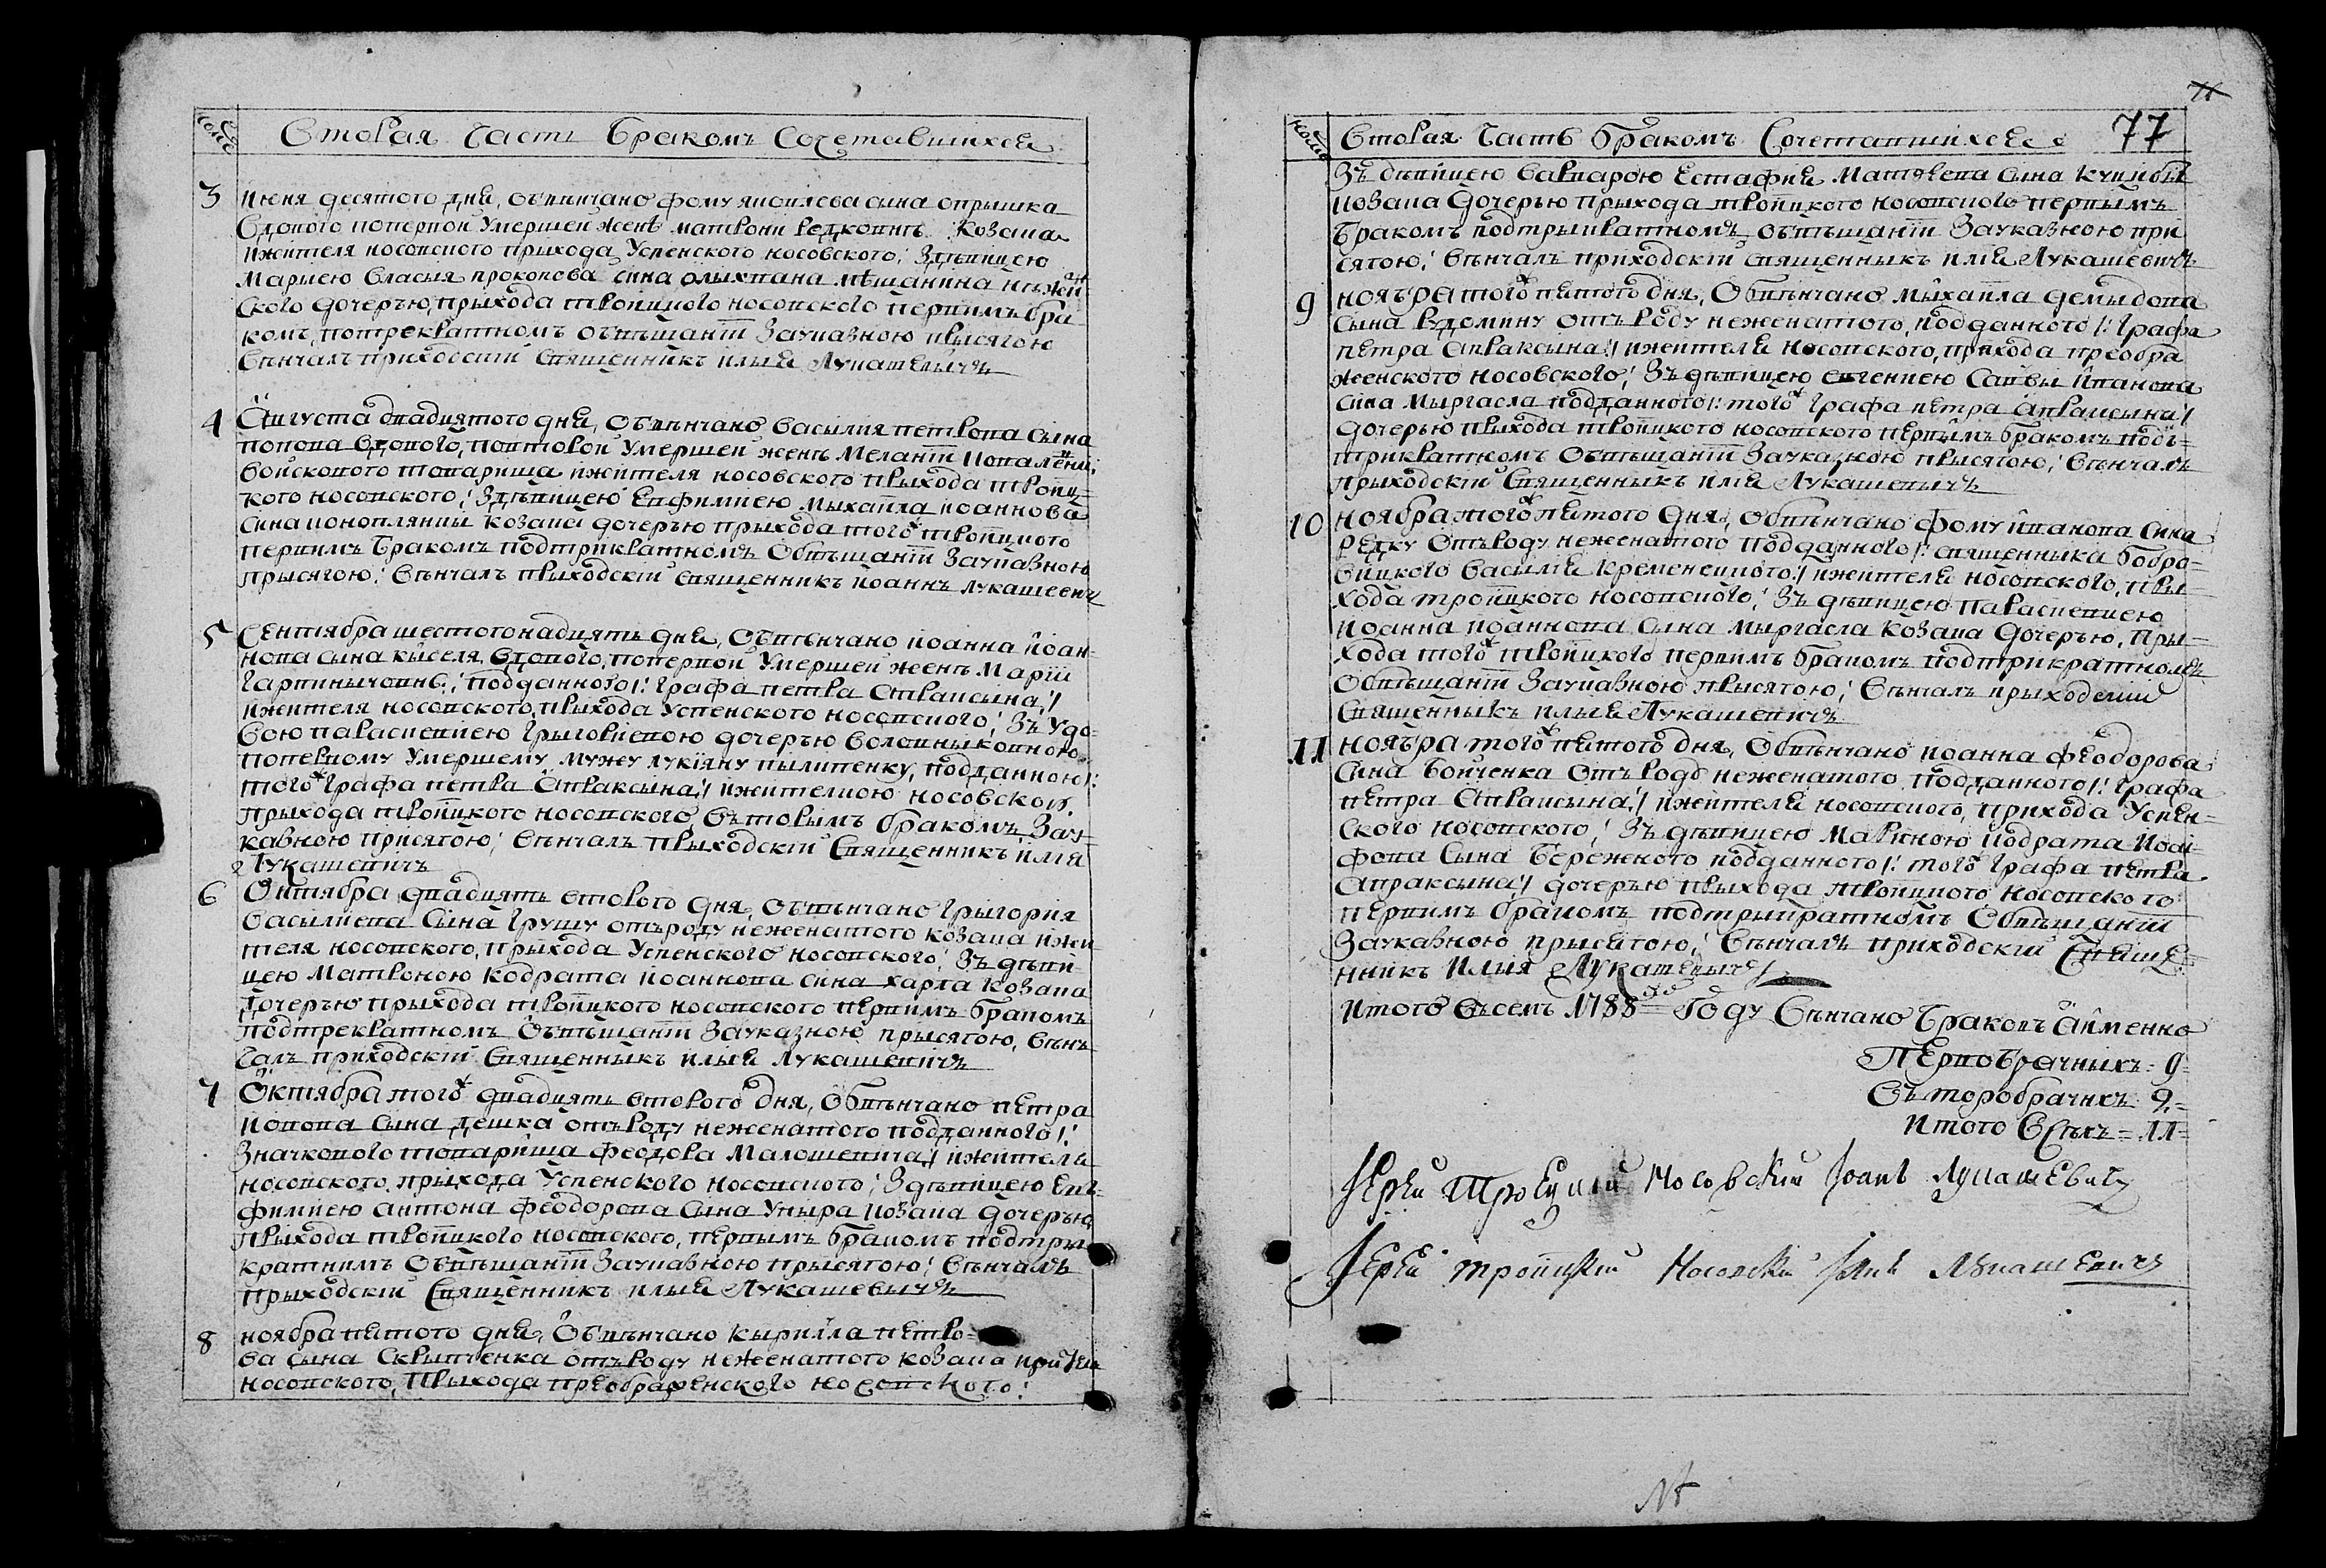 Втораꙗ Часть Бракомъ Сочетавшихсѧ
3 Июня десятого дня, обвѣнчано фому яковлева сына опрышка
вдового поперvой умершей женѣ матрони редковнѣ козака
ижителя носовского прихода Успенского носовского; Здѣвицею
Мариею власыя прокопова сина олыхпана мѣщанина нѣжин
ского дочерью, прыхода троицкого носовского первимъ бра
комъ, потрекратномъ обвѣщаніи Зауказною прысягою
вѣнчалъ приходскій священникъ илыя Лукашевичъ
4 Августа двадцятого дня, обвѣнчано василия петрова сына
попова вдового, повторой умершей женѣ Меланіи
войскового товарища ижителя носовского прыхода троиц=
кого носовского; Здѣвицею Евфимиею мыхаила иоаннова
сина коноплянки козака дочерью прыхода того троицкого
первимъ бракомъ подтрикратномъ Обвѣщаніи Зауказною
прысягою; вѣнчалъ прыходскій священникъ иоаннъ лукашевич
5 Сентября шестогонадцять дня, обвѣнчано иоанна иоан-
нова сына киселя вдового, поперvой умершей женѣ Маріи
подданного/: графа петра апраксына:/
ижителя носовского, прыхода Успенского носовского; Зъ удо-
вою параскевиею Грыгориевою дочерью
поперvому умершему мужу лукіяну пылипенку, подданною/:
того графа петра Апраксына:/ ижителкою носовской
прыхода троицкого носовского, вѣторымъ бракомъ, Зау-
казною присягою; вѣнчалъ прыходскій священникъ илія
Лукашевичъ
6 Октября двадцять второго дня, обвѣнчано грыгория
василиева сына Грушу отъроду неженатого козака ижи
теля носовского, прихода Успенского носовского; Зъ дѣви-
цею Матроною кодрата иоаннова сина харха козака
дочерью прыхода троицкого носовского первимъ бракомъ
подтрекратномъ Обвѣщаніи Зауказною прысягою, вѣн
чалъ приходскій Священныкъ илыя Лукашевичъ
7 Октября того двадцять второго дня, Обвѣнчано петра
иовова сына дешка отъроду неженатого подданного/:
Значкового товарища феодора Малошевича:/ ижителя
носовского, прыхода Успенского носовского; Здѣвицею Ев-
фимиею антона Феодорова сына Уныра козака дочерью
прыхода троицкого носовского, первымъ бракомъ подтри
кратнимъ Обвѣщаніи Зауказною прысягою; вѣнчалъ
прыходскій Священникъ илыя Лукашевычъ
8 ноября пятого дня, Обвѣнчано кырилла петро=
ва сына Скрыпченка отъроду неженатого козака
носовского, Прыхода преображенского носовского;
Втораꙗ Часть Бракомъ Сочетавшихсѧ 77
Зъ дѣвицею варварою Естафия Матвеева сына
козака дочерью прыхода троицкого носовского первымъ
бракомъ подтрыкратномъ обвѣщаніи Зауказною при
сягою; вѣнчалъ приходскій священныкъ илія Лукашевичъ
9 ноября того пятого дня, Обвѣнчано михаила демыдова
сына отъ роду неженатого, подданного/: графа
петра апраксына:/ ижителя носовского, прихода преобра
женского носовского; Зъ дѣвицею евгениею Саввы иванова
сина Мыргасла подданного/: того графа петра апраксына:/
дочерью прыхода троицкого носовского первымъ бракомъ подъ-
трикратномъ Обвѣщаніи Зауказною прысягою; вѣнчалъ
прыходскій Священныкъ илія Лукашевычъ
10 ноября того пятого дня, обвѣнчано фому иванова сина
редку отъроду неженатого подданного/: священныка бобро-
вицкого василия кременецкого:/ ижителя носовского, пры-
хода троицкого носовского; Зъ дѣвицею параскевиею
иоанна иоаннова сына мыргасла козака дочерью, пры-
хода того троицкого первимъ бракомъ подтрикратномъ
обвѣщаніи Зауказною прысягою; вѣнчалъ прыходский
Священныкъ илыя Лукашевичъ
11 ноября того пятого дня, Обвѣнчано иоанна феодорова
сина бойченка отъ роду неженатого подданного/: графа
петра апраксына:/ ижителя носовского, прихода Успен-
ского носовского; Зъ дѣвицею мариною кодрата иоси-
фова сына бережного подданного/: того графа петра
апраксына:/ дочерью прыхода троицкого носовского
первимъ бракомъ подтрыкратномъ Обвѣщаніи
Зауказною прысягою; вѣнчалъ приходскій Свяще-
нникъ илия Лукашевычъ
Итого въсемъ 1788 году вѣнчано браковъ аименно
первобрачныхъ 9
въторобрачнхъ 2
Итого всѣхъ = 11
Іерей Троецкий Носовский Іоанъ Лукашевичъ
Іерей троицкий Носовский Илія Лукашевичъ